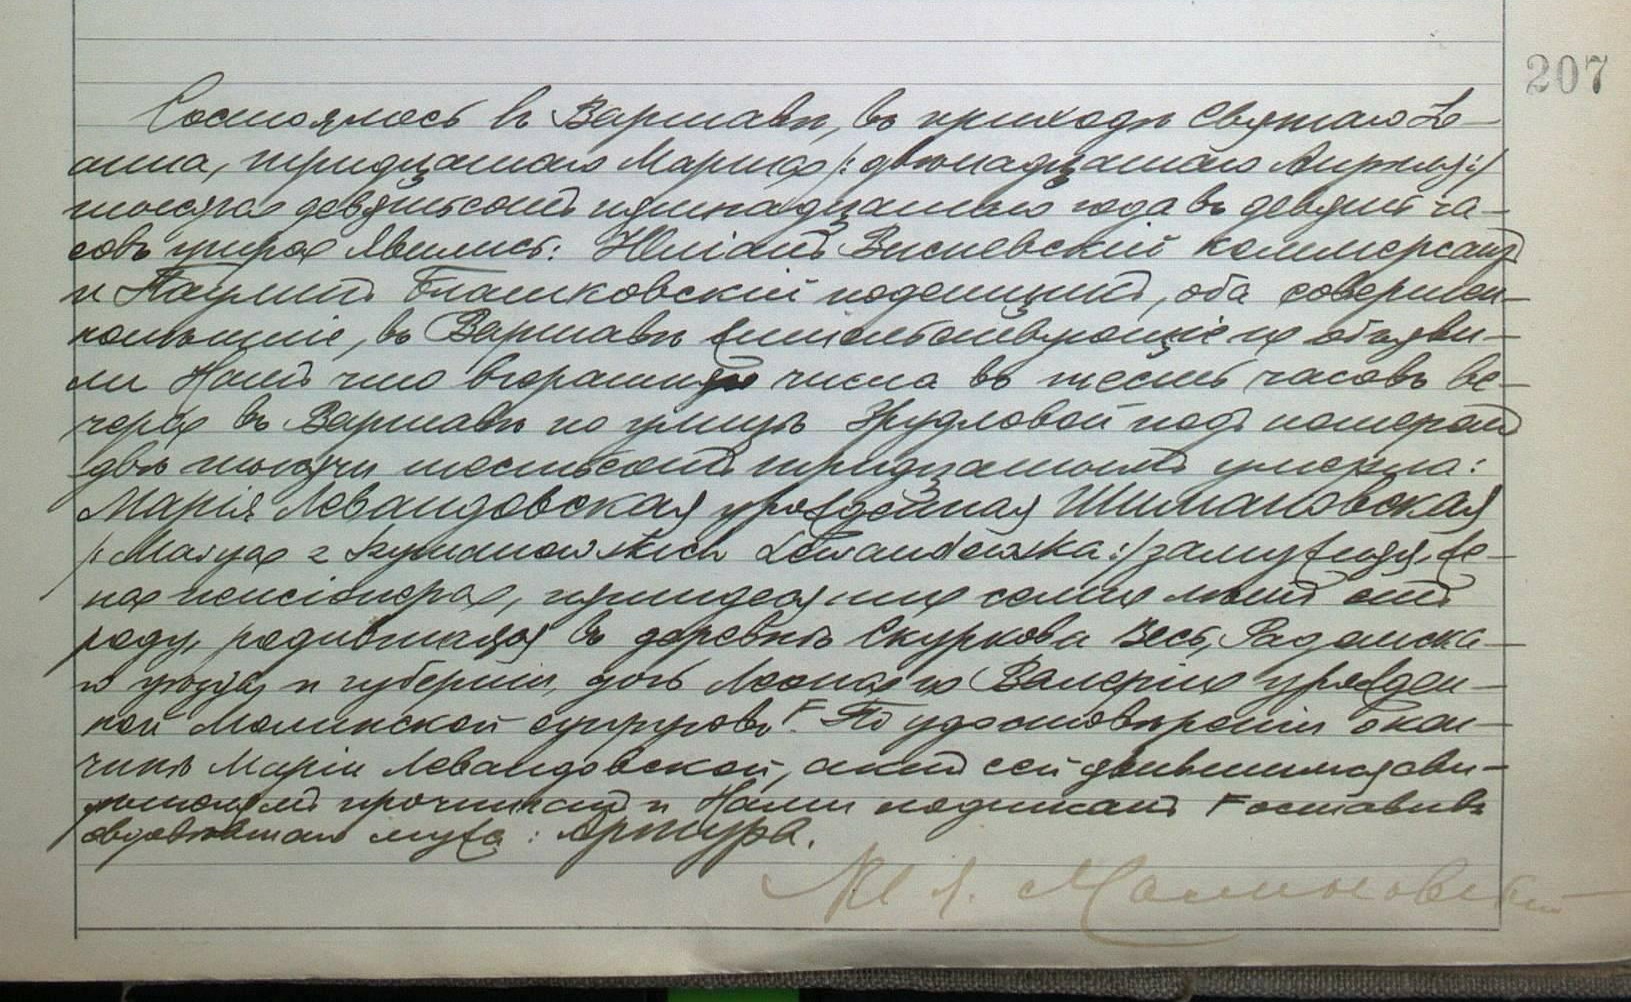 207
Состоялось въ Варшавѣ, въ приходѣ Святаго Іо-
анна, тридцатаго Марта /:двѣнадцатаго Апрѣля:/
тысяча девятьсотъ пятнадцатаго года въ девять ча-
совъ утра. Явились: Юліанъ Висневскій коммерсантъ
и Паулинъ Блашковскій поденщикъ, оба совершен-
нолѣтніе, въ Варшавѣ жительствующіе и объяви-
ли Намъ что вчерашняго числа въ шесть часовъ ве-
чера въ Варшавѣ по улицѣ подъ номеромъ
двѣ тысячи шестьсотъ тридцатымъ умерла:
Марія Левандовская урожденная Шимановская
/:Marya z Szymanowskich Lewandowska:/ замужняя, же-
на пенсіонера, пятидесяти семи лѣтъ отъ
роду, родившаяся въ деревнѣ Скуркова Весь, Радомска-
го уѣзда и губерніи, дочь и Валеріи урожден-
ной супруговъ. F По удостовѣреніи о кон-
чинѣ Маріи Левандовской, актъ сей явившимся сви-
дѣтелямъ прочитанъ и Нами подписанъ F оставивъ
овдовѣвшаго мужа: Артура.